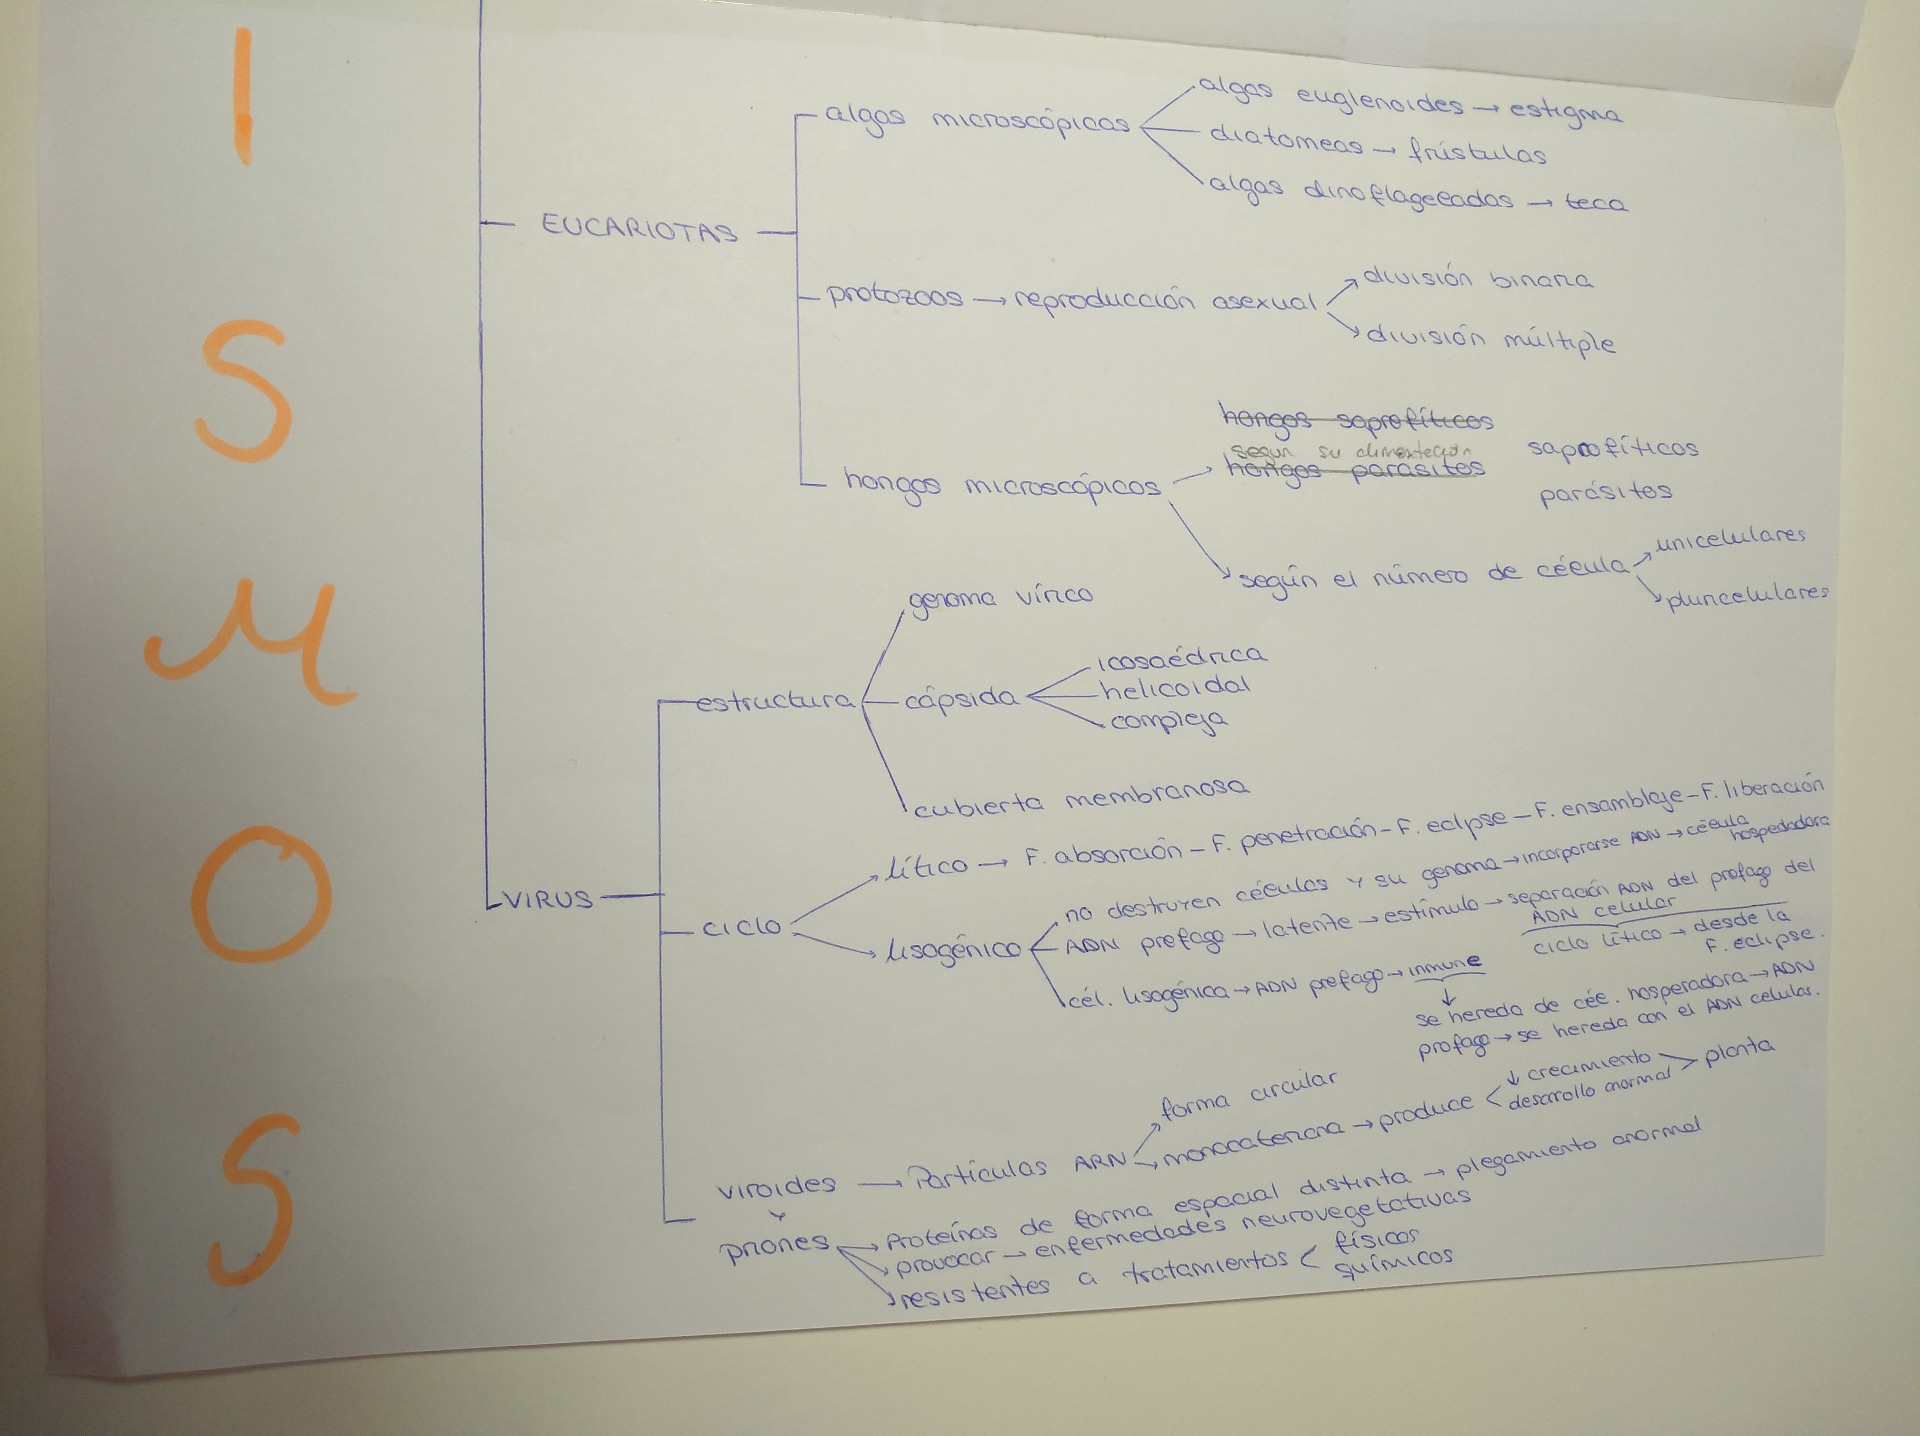 I
S
M
O
S
EUCARIOTAS
algas microscópicas
algas euglenoides → estigma
diatomeas → frústulas
algas dinoflageladas → teca
protozoos → reproducción asexual
división binaria
división múltiple
hongos microscópicos
hongos saprofíticos
según su alimentación
hongos parásitos
saprofíticos
parásitos
según el número de célula
unicelulares
pluricelulares
VIRUS
estructura
genoma vírico
cápsida
icosaédrica
helicoidal
compleja
cubierta membranosa
ciclo
lítico → F. absorción - F. penetración - F. eclipse - F. ensamblaje - F. liberación
lisogénico
no destruyen células y su genoma → incorporarse ADN → célula hospedadora
ADN profago → latente → estímulo → separación ADN del profago del
ADN celular
ciclo lítico → desde la
F. eclipse.
cél. lisogénica → ADN profago → inmune
↓
se hereda de cél. hosperadora → ADN
profago → se hereda con el ADN celular.
viroides → Partículas ARN
forma circular
monocatenaria → produce < ↓ crecimiento
desarrollo anormal > planta
y
priones
Proteínas de forma espacial distinta → plegamiento anormal
provocar → enfermedades neurovegetativas
resistentes a tratamientos < físicos
químicos